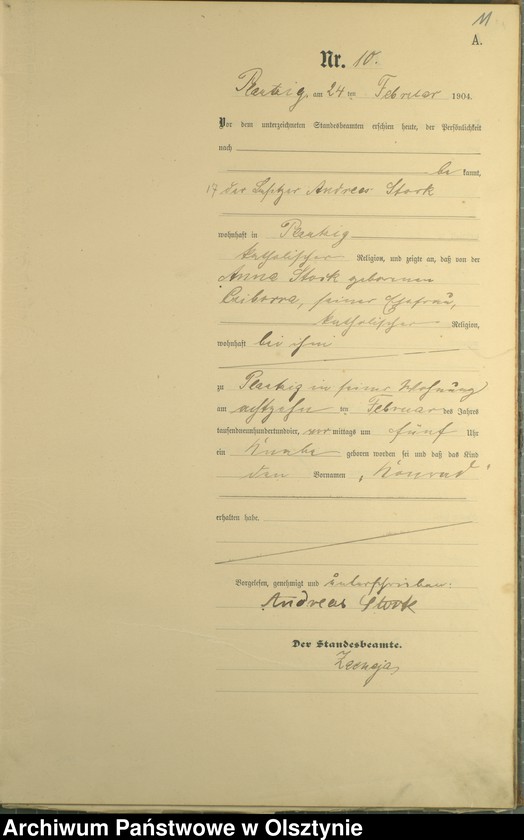 11
A.
Nr. 10.
am 24 ten Februar 1904.
Vor dem unterzeichneten Standesbeamten erschien heute, der Persönlichkeit
nach
be kannt,
der Besitzer Andreas Stork
wohnhaft in
katholischer Religion, und zeigte an, daß von der
Anna Stork geborenen
seiner Ehefrau,
katholischer Religion,
wohnhaft bei ihm
zu in seiner Wohnung
am achtzehn ten Februar des Jahres
tausendneunhundertundvier, vor mittags um fünf Uhr
ein Knabe geboren worden sei und daß das Kind
den Vornamen „Konrad“
erhalten habe.
Vorgelesen, genehmigt und unterschrieben:
Andreas Stork
Der Standesbeamte.
Archiwum Państwowe w Olsztynie